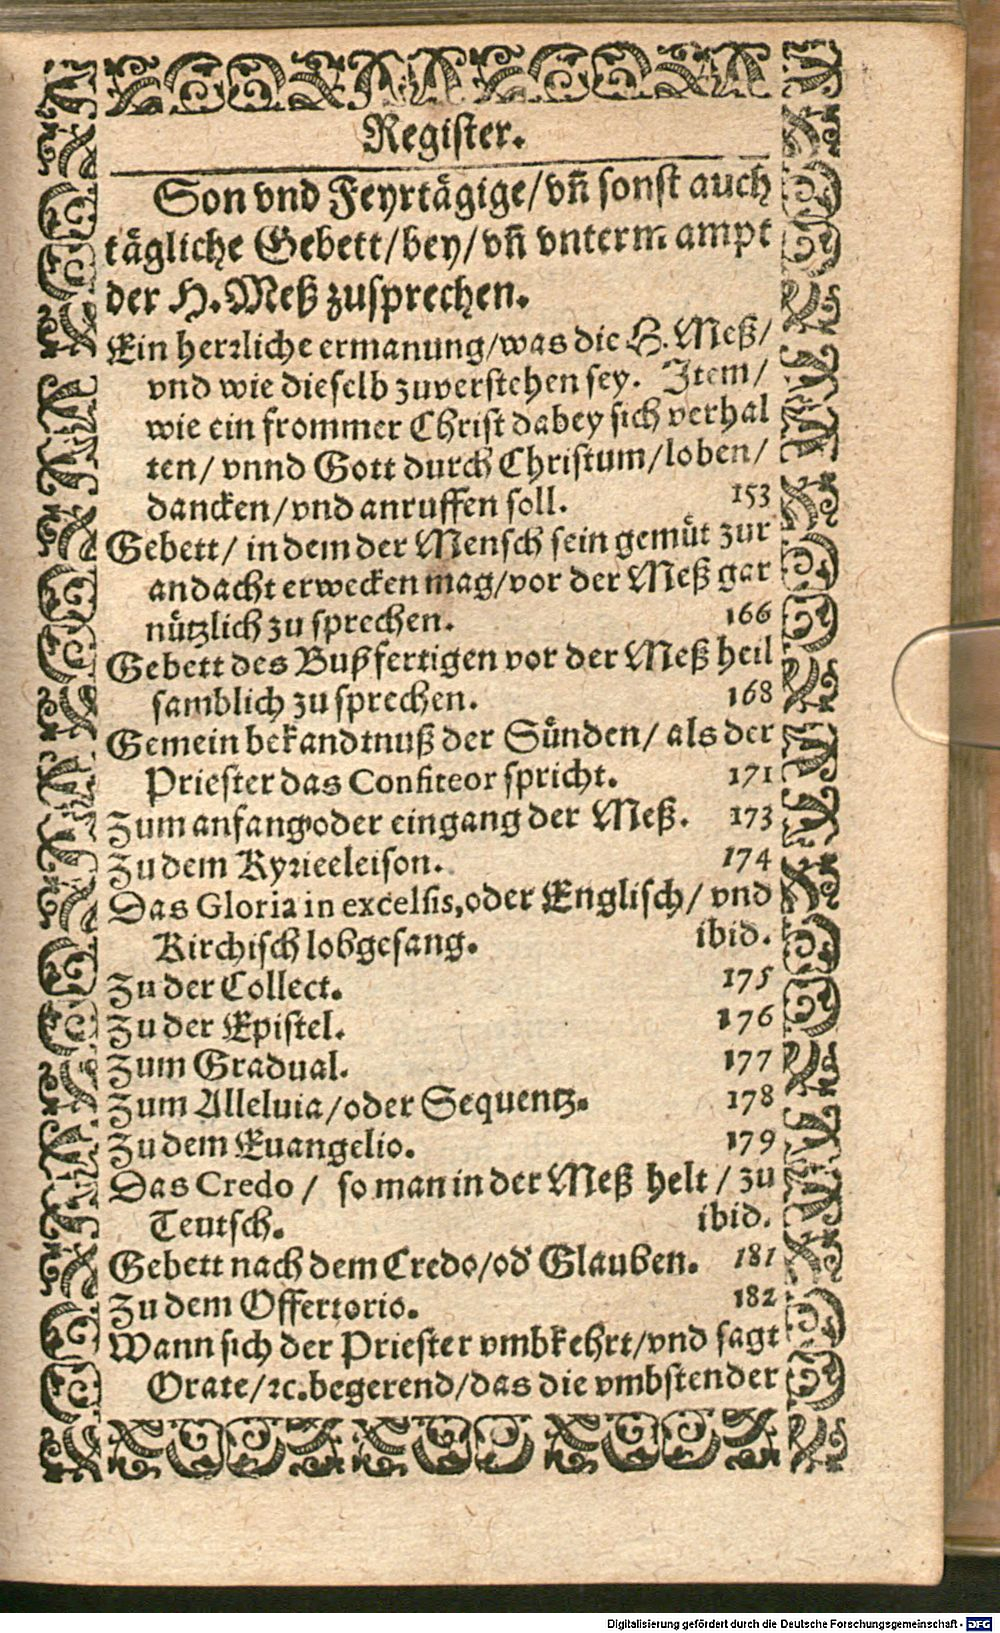 Register.
Son vnd Feyrtägige/vn̄ sonst auch
tägliche Gebett/bey/vn̄ vnterm ampt
der H. Meß zusprechen.
Ein herrliche ermanung/was die H. Meß/
vnd wie dieselb zuverstehen sey. Item/
wie ein frommer Christ dabey sich verhal
ten/vnnd Gott durch Christum/loben/
dancken/vnd anruffen soll. 153
Gebett/in dem der Mensch sein gemüt zur
andacht erwecken mag/vor der Meß gar
nützlich zu sprechen. 166
Gebett des Bußfertigen vor der Meß heil
samblich zu sprechen. 168
Gemein bekandtnuß der Sünden/als der
Priester das Confiteor spricht. 171
Zum anfang oder eingang der Meß. 173
Zu dem Kyrieeleison. 174
Das Gloria in excelsis, oder Englisch/vnd
Kirchisch lobgesang. ibid.
Zu der Collect. 175
Zu der Epistel. 176
Zum Gradual. 177
Zum Alleluia/oder Sequentz. 178
Zu dem Euangelio. 179
Das Credo/ so man in der Meß helt/zu
Teutsch. ibid.
Gebett nach dem Credo/od' Glauben. 181
Zu dem Offertorio. 182
Wann sich der Priester vmbkehrt/vnd sagt
Orate/ꝛc. begerend/das die vmbstender
Digitalisierung gefördert durch die Deutsche Forschungsgemeinschaft - DFG